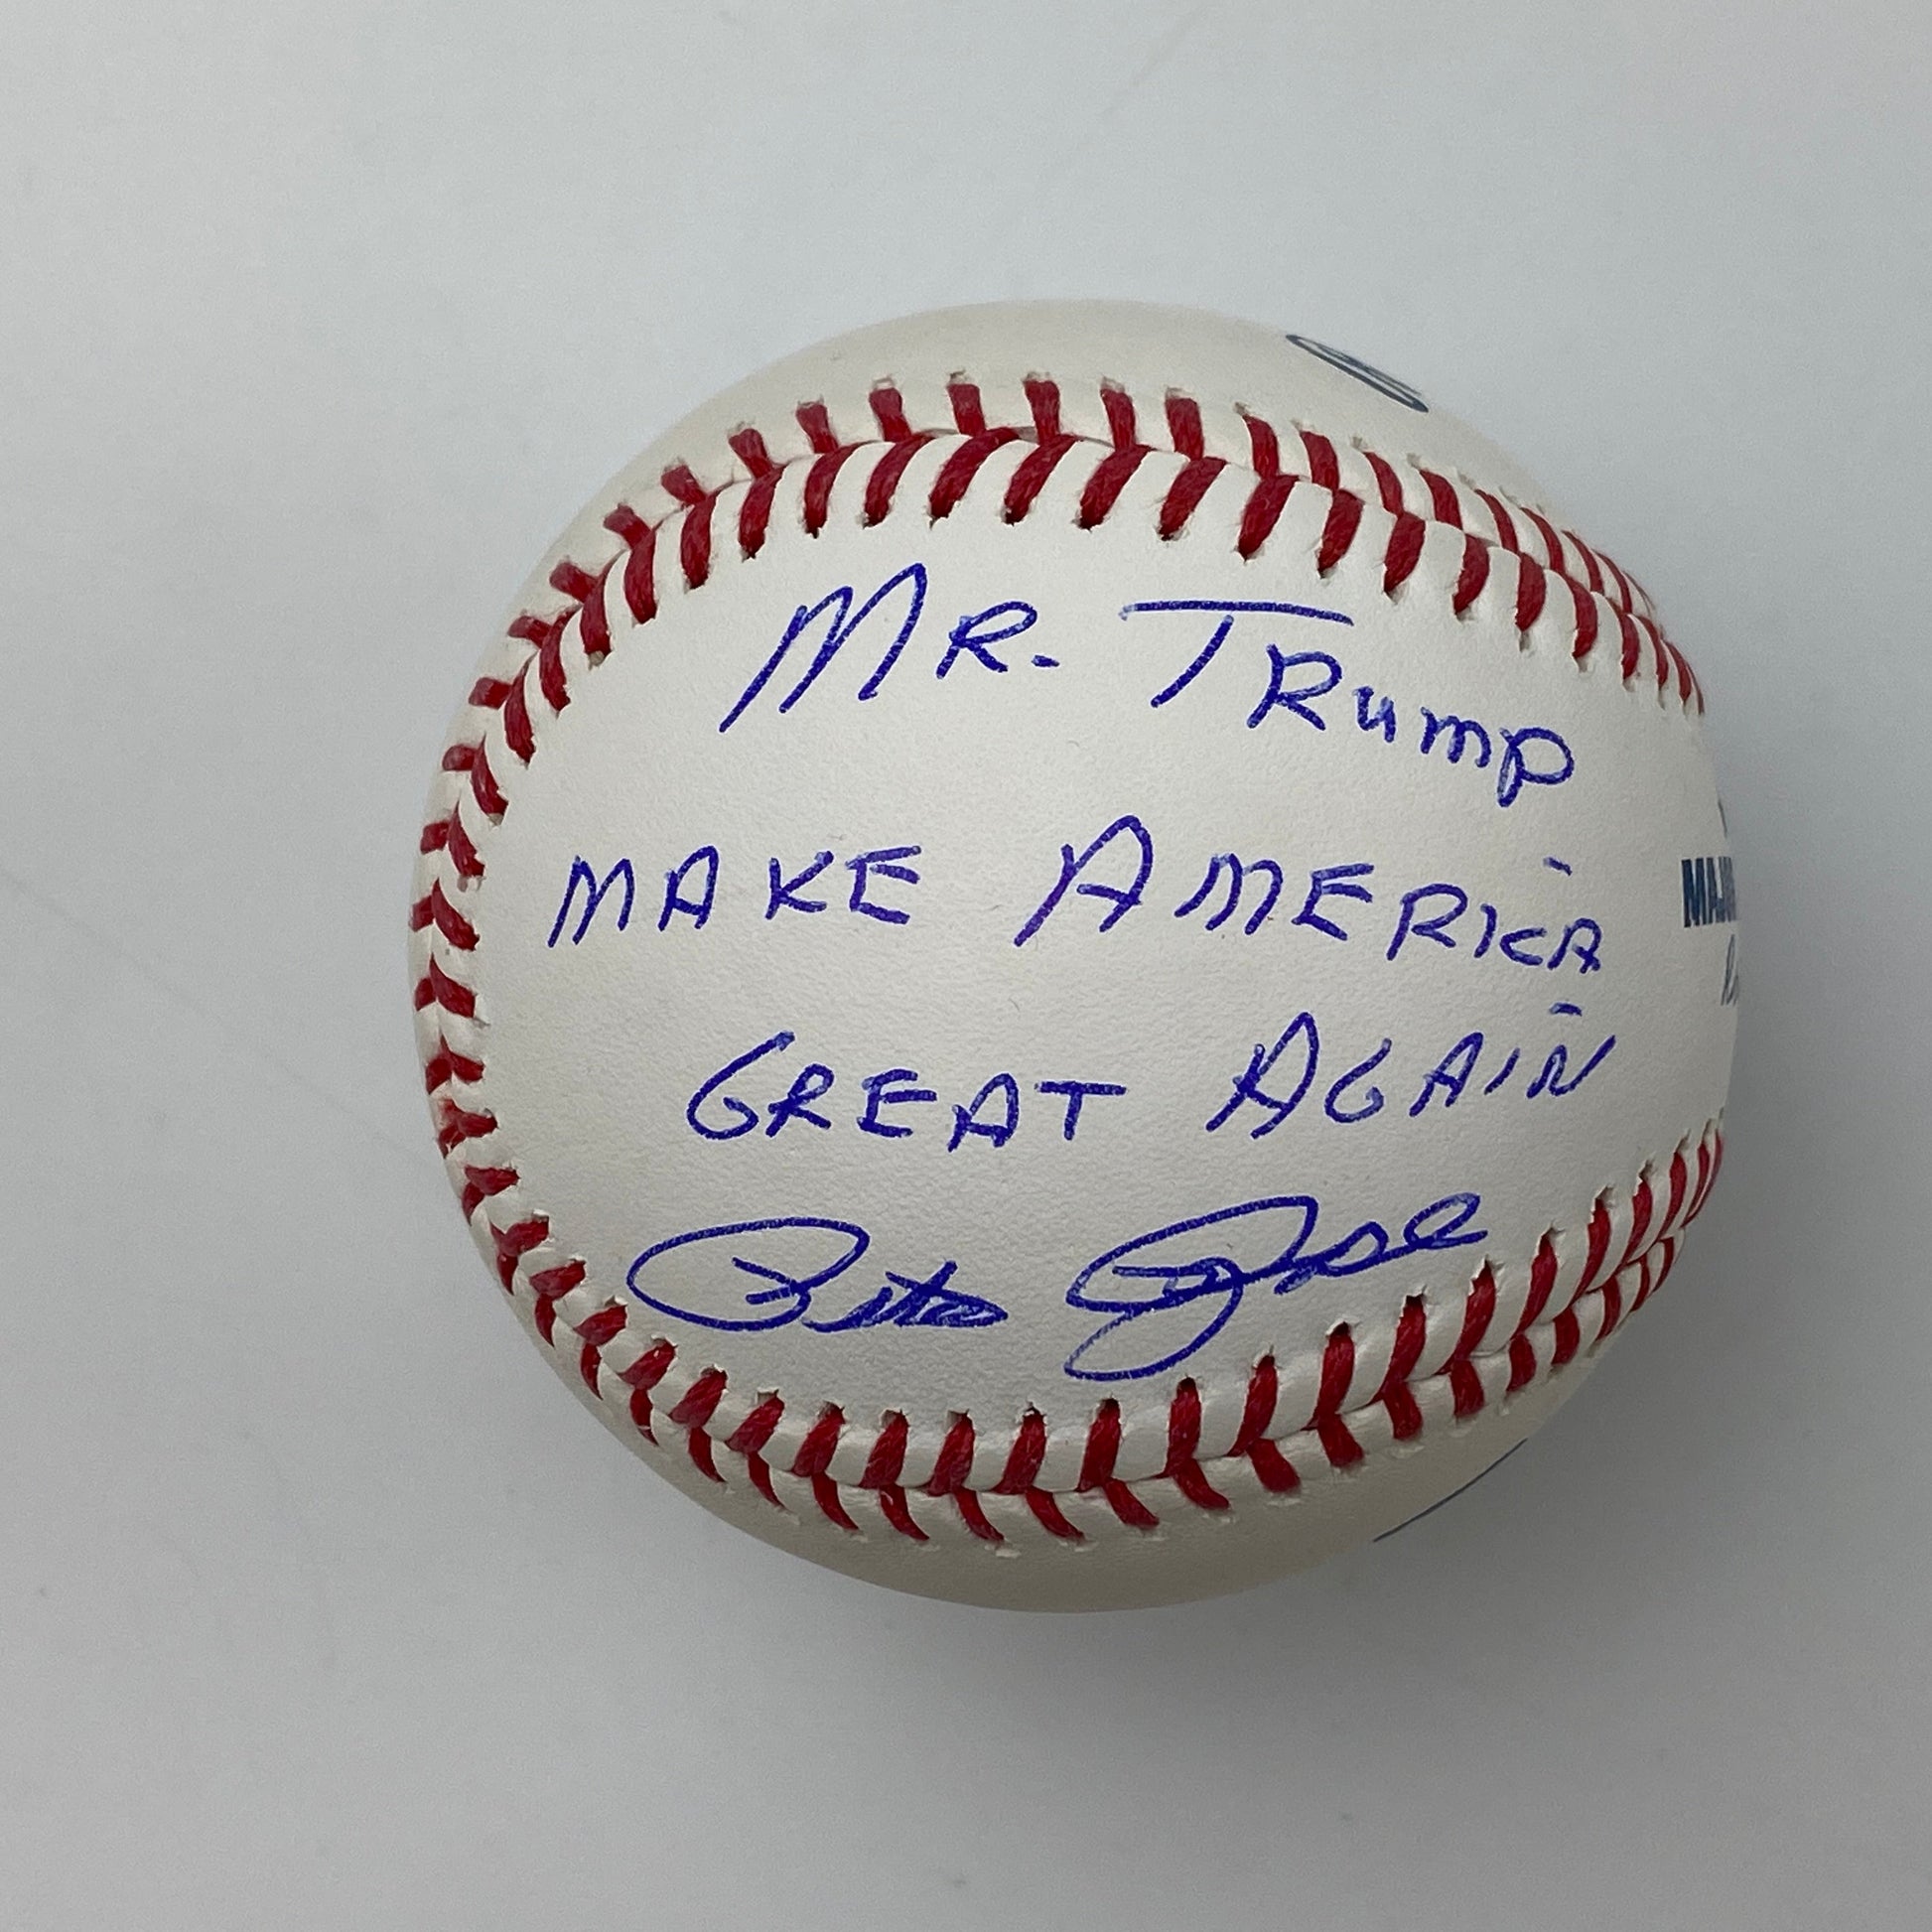 MR. TRump
MAKE AMERICA
GREAT AGAIN
Pete Rose